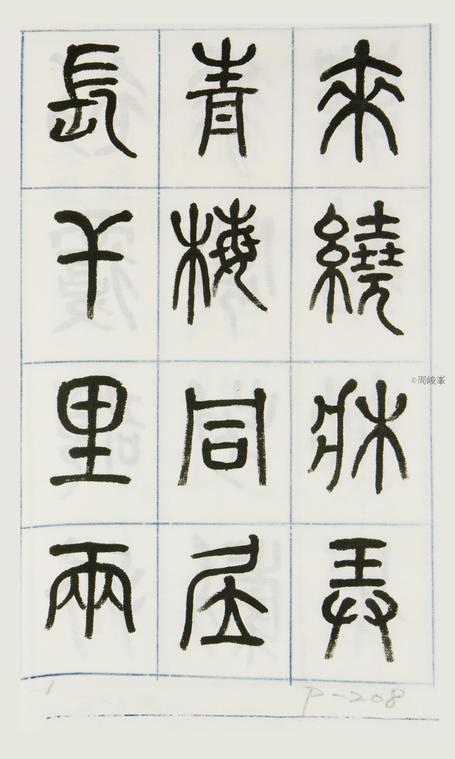 來繞牀弄
青梅同居
長干里兩
©周峻峯
P-208